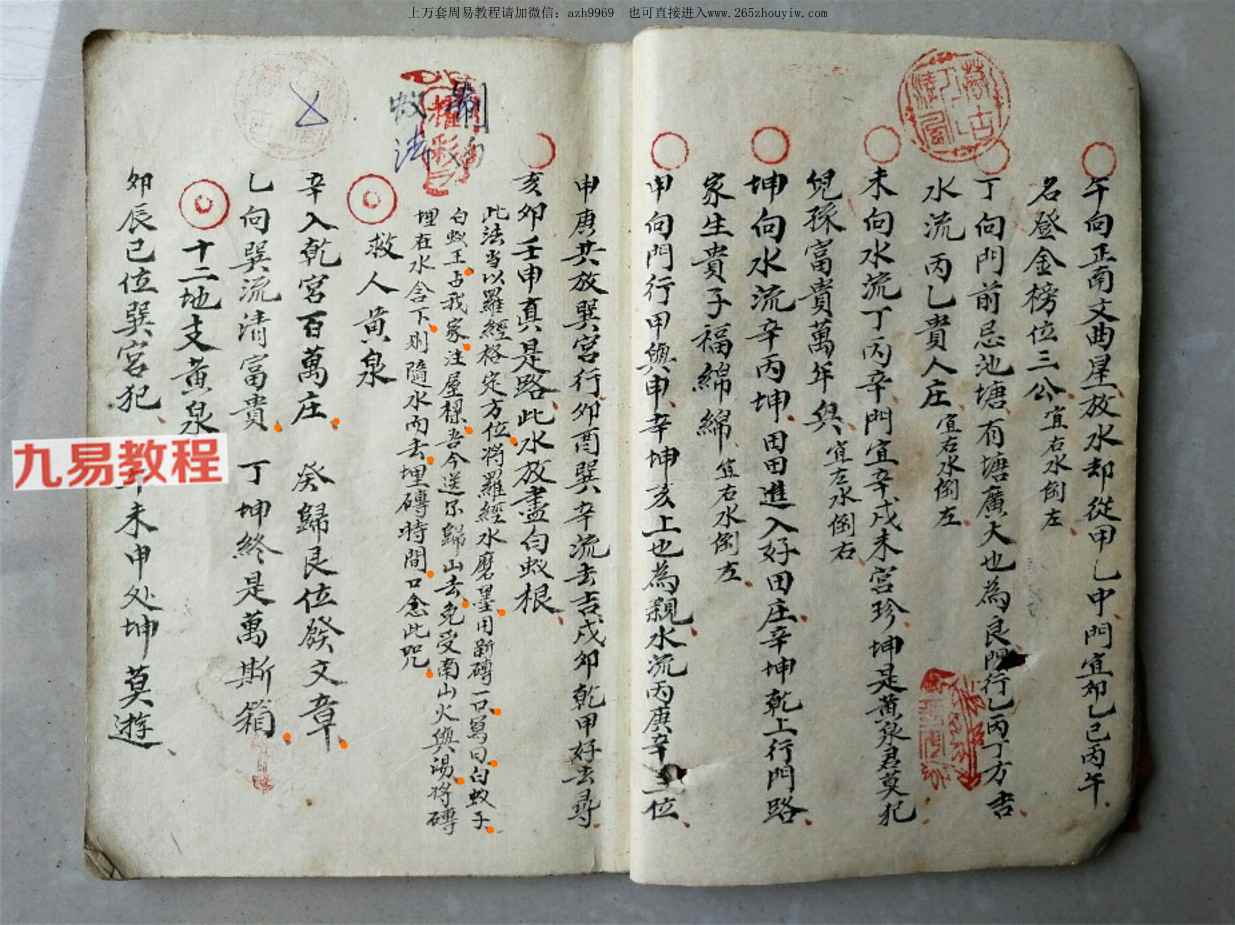 上万套周易教程请加微信：azh9969　也可直接进入www.265zhouyiw.com
午向正南文曲星放水却從甲乙中門宜卯乙巳丙午
名登金榜位三公宜右水倒左
丁向門前忌池塘有塘廣大也為良陽行乙丙丁方吉
水流丙乙貴人庄宜右水倒左
未向水流丁丙辛門宜辛戌未宮珍坤是黃泉君莫犯
兒孫富貴萬年興宜左水倒右
坤向水流辛丙坤田田進入好田庄辛坤乾上行門路
家生貴子福綿綿宜右水倒左
申向門行甲與申辛坤亥上也為親水流丙庚辛位
申庚共放巽宮行卯酉巽辛流去吉戌卯乾甲好去尋
亥卯壬申真是路此水放盡白蚁根
制白蚁法
權彩
此法当以羅經格定方位將羅經水磨墨用新磚一口寫曰白蚁子
白蚁王占我家注屋樑吾今送尔歸山去免受南山火與湯将磚
埋在水含下則隨水而去埋磚時間口念此咒
救人黃泉
辛入乾宮百萬庄　癸歸艮位發文章
乙向巽流清富貴　丁坤終是萬斯箱
十二地支黃泉
卯辰巳位巽宮犯　未申处坤莫遊
九易教程